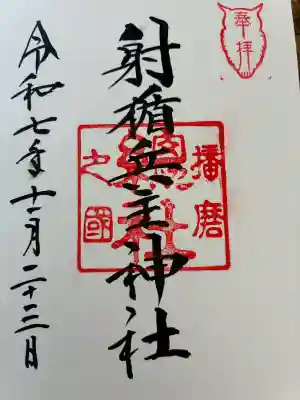 奉拝
射楯兵主神社
播磨
総社
之國
令和七年十一月二十三日